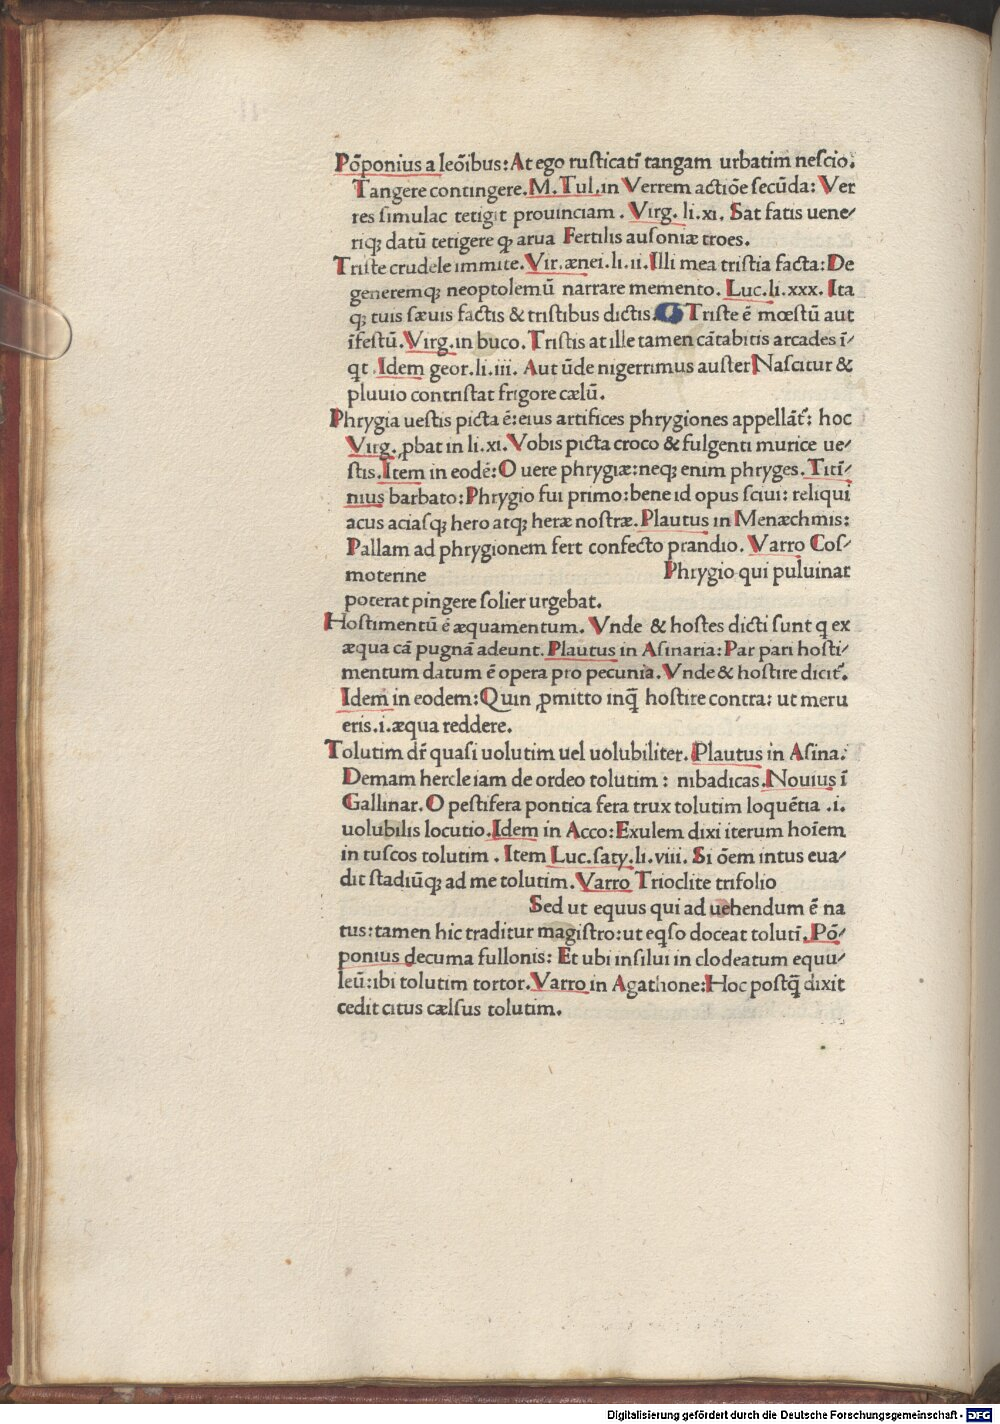 Põponius a leõibus: At ego rusticatĩ tangam urbatim nescio.
Tangere contingere. M. Tul. in Verrem actiõe secũda: Ver
res simulac tetigit prouinciam. Virg. li. xi. Sat fatis uene/
riqꝫ datũ tetigere ꝙ arua Fertilis ausoniæ troes.
Triste crudele immite. Vir. ænei. li. ii. Illi mea tristia facta: De
generemqꝫ neoptolemũ narrare memento. Luc. li. xxx. Ita
qꝫ tuis sæuis factis & tristibus dictis. Triste ẽ mœstũ aut
ĩfestũ. Virg. in buco. Tristis at ille tamen cãtabitis arcades ĩ/
qt. Idem geor. li. iii. Aut ũde nigerrimus auster Nascitur &
pluuio contristat frigore cælũ.
Phrygia uestis picta ẽ: eius artifices phrygiones appellãt᷑: hoc
Virg. ꝓbat in li. xi. Vobis picta croco & fulgenti murice ue/
stis. Item in eodẽ: O uere phrygiæ: neqꝫ enim phryges. Titĩ/
nius barbato: Phrygio fui primo: bene id opus sciui: reliqui
acus aciasqꝫ hero atqꝫ heræ nostræ. Plautus in Menæchmis:
Pallam ad phrygionem fert confecto prandio. Varro Cos/
moterine Phrygio qui puluinar
poterat pingere solier urgebat.
Hostimentũ ẽ æquamentum. Vnde & hostes dicti sunt q ex
æqua cã pugnã adeunt. Plautus in Asinaria: Par pari hosti/
mentum datum ẽ opera pro pecunia. Vnde & hostire dicit᷑.
Idem in eodem: Quin ꝓmitto inq̃ hostire contra: ut meru
eris. i. æqua reddere.
Tolutim dr̃ quasi uolutim uel uolubiliter. Plautus in Asina:
Demam hercle iam de ordeo tolutim: nibadicas. Nouius ĩ
Gallinar. O pestifera pontica fera trux tolutim loquẽtia .i.
uolubilis locutio. Idem in Acco: Exulem dixi iterum hoĩem
in tuscos tolutim. Item Luc. saty. li. viii. Si õem intus eua/
dit stadiũqꝫ ad me tolutim. Varro Trioclite trifolio
Sed ut equus qui ad uehendum ẽ na
tus: tamen hic traditur magistro: ut eqꝫso doceat tolutĩ. Põ/
ponius decuma fullonis: Et ubi insilui in clodeatum equu/
leũ: ibi tolutim tortor. Varro in Agathone: Hoc postq̃ dixit
cedit citus cælsus tolutim.
Digitalisierung gefördert durch die Deutsche Forschungsgemeinschaft - DFG